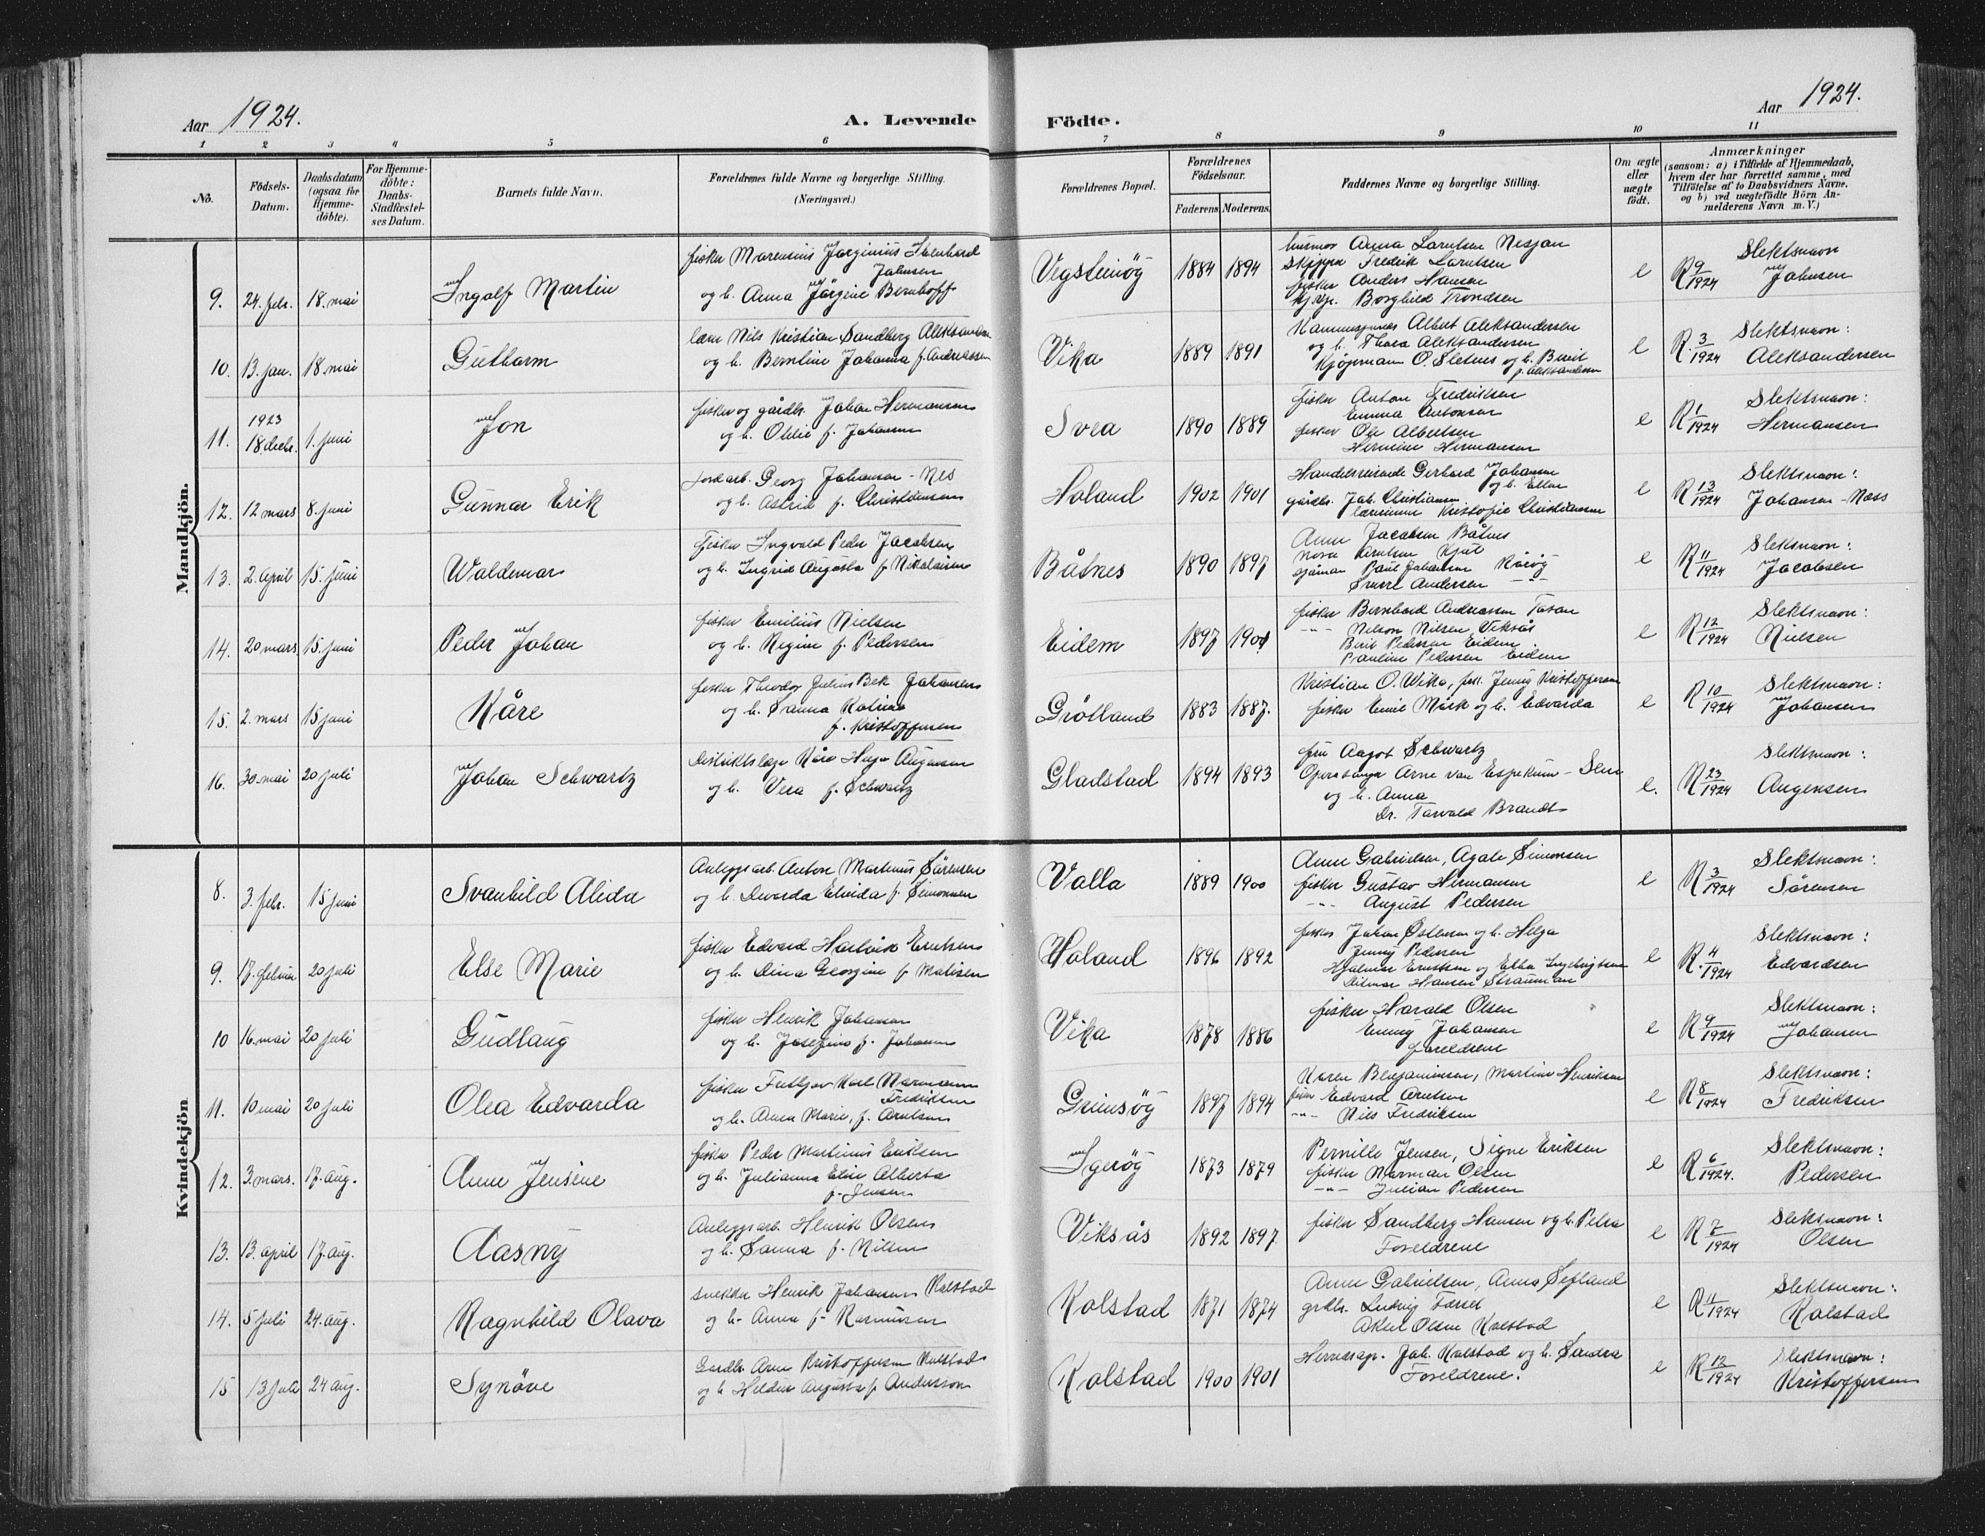 Aar 1924.
A. Levende Födte.
Aar 1924.
1 2 3 4 5 6 7 8 9 10 11
No.
Födsels-Datum.
Daabsdatum (ogsaa for Hjemme-döbte).
For Hjemme-döbte: Daabs-Stadfæstel-ses Datum.
Barnets fulde Navn.
Forældrenes fulde Navne og borgerlige Stilling.
(Næringsvei.)
Forældrenes Bopæl.
Forældrenes Födselsaar.
Faderens. Moderens.
Faddernes Navne og borgerlige Stilling.
Om ægte eller uægte födt.
Anmærkninger
(saasom: a) i Tilfælde af Hjemmedaab, hvem der har forrettet samme, med Tilföielse af to Daabsvidners Navne, og b) ved uægtefödte Börn An-melderens Navn m. V.)
Mandkjön.
9. 24. febr. 18 mai Ingolf Martin
fisker Marensius Jørginius Ikenhard
Johnsen
og h. Anna Jörgine Bernhoff
Vegsteinöy 1884 1894
husmor Anna Larntsen Nesjan
Skipper Fredrik Larntsen
fisker Anders Hansen
Borghild Trondsen
e R 9/1924 Slektsnavn Johnsen
10. 13. jan. 18 mai Guthorm
lærer Nils Kristian Sandberg Aleksandersen
og h. Berntine Johanna f. Andreassen
Vika 1889 1891
Albert Aleksandersen
og h. Thora Aleksandersen
Kjøpmann O. Sletnes og h. Berit
f. Aleksandersen
e R 3/1924 Slektsnavn: Aleksandersen
11. 1923 18 decbr. 1. juni Jon
fisker og gårdbr. Johan Hermansen
og h. Oldie f. Johansen
Svea 1890 1889
fisker Anton Fredriksen
Emma Antonsen
fisker Ole Albertsen
Hermine Hermansen
e R 1/1924 Slektsnavn: Hermansen
12. 12 mars 8. juni Gunnar Erik
jordarb. Georg Johansen - Nes
og h. Astrid f. Christiansen
Holand 1902 1901
Handelsreisende Gerhard Johansen
og h. Ellen
gårdbr. Joh. Christiansen
lærerinne Kristofie Christiansen
e R 13/1924 Slektsnavn: Johansen - Næss
13. 2. april 15. juni Waldemar
fisker Ingvald Peder Jacobsen
og h. Ingrid Augusta f. Nikolaisen
Båtnes 1890 1897
Anne Jacobsen Båtnes
Nora Arntsen Kjul
sjöman Paul Johansen
Sverre Andersen -"-
e R 11/1924 Slektsnavn: Jacobsen
14. 20 mars 15. juni Peder Johan
fisker Emilius Nielsen
og h. Regine f. Pedersen
Eidem 1897 1901
fisker Bernhard Andreassen
-"- Nelson Nilsen Viksås
Berit Pedersen Eidem
Pauline Pedersen Eidem
e R 12/1924 Slektsnavn: Nielsen
15. 2. mars 15 juni Kåre
fisker Theodor Julius Bek Johansen
og h. Sanna Katrine
f. Kristoffersen
Grötland 1883 1887.
Kristian O. Wika, Jenny Kristoffersen
fisker Emil Mörk og h. Edvarda
e R 10/1924 Slektsnavn: Johansen
16. 30 mai 20 juli Johan Schwartz
Distriktslæge Kåre Helge Augensen
og h. Vera f. Schwartz
Gladstad 1894 1893
fru Aagot Schwartz
Operasanger Arne van Erpekum - Sem
og h. Anna
Dr. Tarvald Brandt
e. R 23/1924 Slektsnavn: Augensen
Kvindekjön
8. 3. febr. 15 juni Svanhild Alida
Anleggsarb. Anton Martinus Sörensen
og h. Devarda Elvida f. Simonsen
Valla 1889 1900
Anne Gabrielsen, Agate Simonsen
fisker Gustav Hermansen
-"- August Pedersen
e R 3/1924 Slektsnavn: Sörensen
9. 17. februar 20 juli Else Marie
fisker Edvard Hartvik Erntsen
og h. Dina Georgine f. Matisen
Holand 1896 1892
fisker Johan Ostensen og h. Helga
Jenny Pedersen
Hjalmar Erntsen og Ebba Ingebrigtsen
Ditmar Hansen Straumann
e R. 4/1924 Slektsnavn: Edvardsen
10 16. mai 20 juli Gudlaug
fisker Henrik Johansen
og h. Josefine f. Johansen
Vika 1878 1886
fisker Harald Olsen
Emmy Johansen
foreldrene
e R 9/1924 Slektsnavn: Johansen
11. 10 mai 20 juli Olea Edvarda
fisker Fritjov Karl Normann
Fredriksen
og h. Anna Marie, f. Arntsen
Grimsöy 1897 1894
Karen Benjaminsen, Martine Henriksen
fisker Edvard Arntsen
-"- Nils Fredriksen
e R 8/1924 Slektsnavn: Fredriksen
12. 3. mars. 17. aug. Anne Jensine
fisker Peder Martinus Eriksen
og h. Julianna Elise Alberta
f. Jensen
Igeröy 1873 1879
Pernille Jensen, Signe Eriksen
fisker Norman Olsen
-"- Julian Pedersen
e R 6/1924. Slektsnavn: Pedersen
13. 13. april 17. aug. Aasny
Anleggsarb. Henrik Olsen
og h. Sanna f. Nilsen
Viksås 1892 1897
fisker Sandberg Hansen og h. Petra
Foreldrene
e R 7/1924 Slektsnavn: Olsen
14. 5 juli 24. aug. Ragnhild Olava
snekker Henrik Johansen Kolstad
og h. Anna f. Rasmussen
Kolstad 1871 1874
Anne Gabrielsen, Anna Sefland
grdbr. Ludvig Forset
Aksel Olsen Kolstad
e R 11/1924 Slektsnavn: Kolstad
15 13 juli 24 aug. Synöve
Gardbr. Arne Kristoffersen Kolstad
og h. Heldur Augusta f. Andersson
Kolstad 1900 1901
Herredsagr. Joh. Kolstad og h. Sandra
Foreldrene.
e R 12/1924 Slektsnavn: Kristoffersen